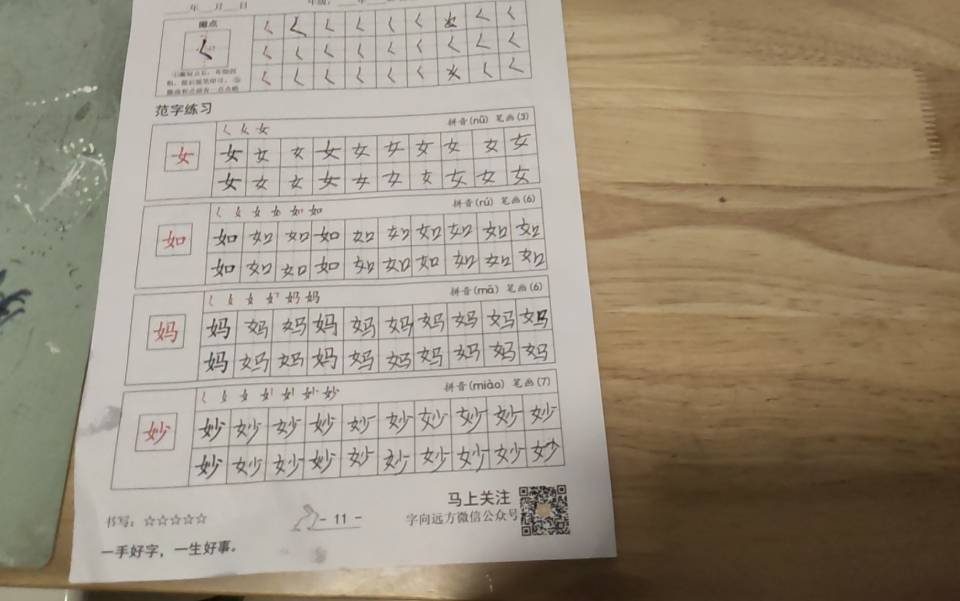 年 月 日 年级: 年
撇点
く く く く く く 女 く く
く く く く く く く く く
く く く く く く 女 く く
范字练习
拼音(nǚ) 笔画(3)
女 女 女 女 女 女 女 女 女 女 女
女 女 女 女 女 女 女 女 女 女
拼音(rú) 笔画(6)
如 如 如 如 如 如 如 如 如 如 如
如 如 如 如 如 如 如 如 如 如
拼音(mā) 笔画(6)
妈 妈 妈 妈 妈 妈 妈 妈 妈 妈 妈
妈 妈 妈 妈 妈 妈 妈 妈 妈 妈
拼音(miào) 笔画(7)
妙 妙 妙 妙 妙 妙 妙 妙 妙 妙 妙
妙 妙 妙 妙 妙 妙 妙 妙 妙 妙
马上关注
书写: ☆☆☆☆☆ - 11 - 字向远方微信公众号
一手好字，一生好事。